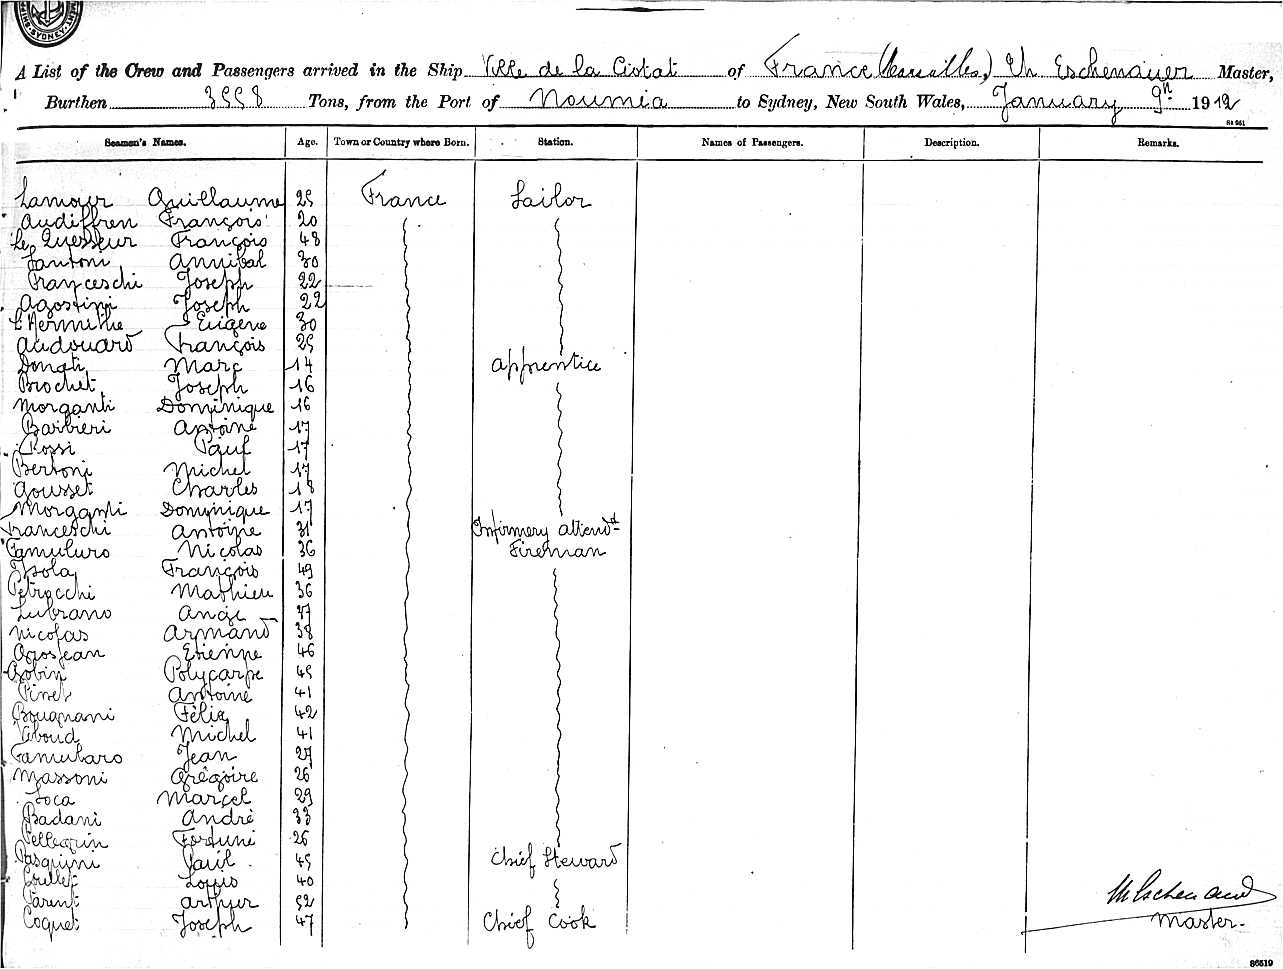 SYDNEY
A List of the Crew and Passengers arrived in the Ship Ville de la Ciotat of France (Marseilles) Ch Eschenauer Master,
Burthen 3998 Tons, from the Port of Noumia to Sydney, New South Wales, January 9th 1912
Seamen's Names. Age. Town or Country where Born. Station. Names of Passengers. Description. Remarks.
Lamour Guillaume 25 France Sailor
Audiffren François 20
Le Quesseur François 48
Santoni Annibal 30
Franceschi Joseph 22
Agostini Joseph 22
L'Hermithe Eugène 30
Audouard François 25
Donati Marc 14 Apprentice
Brochet Joseph 16
Morganti Dominique 16
Barbieri Antoine 17
Rossi Paul 17
Bertoni Michel 17
Gousset Charles 18
Morganti Dominique 17
Franceschi Antoine 31 Infirmery attendt
Camuluro Nicolas 36 Fireman
Isola François 49
Petrocchi Mathieu 36
Lubrano Ange 37
Nicolas Armand 38
Grosjean Etienne 46
Gobin Polycarpe 45
Pinet Antoine 41
Bougnani Félix 42
Viboud Michel 41
Camularo Jean 27
Massoni Grégoire 26
Loca Marcel 29
Badani André 33
Pellegrin Fortuné 26
Pasquini Paul 45 Chief Steward
Louis 40
Parent Arthur 52
Coquet Joseph 47 Chief Cook
Master.
86519